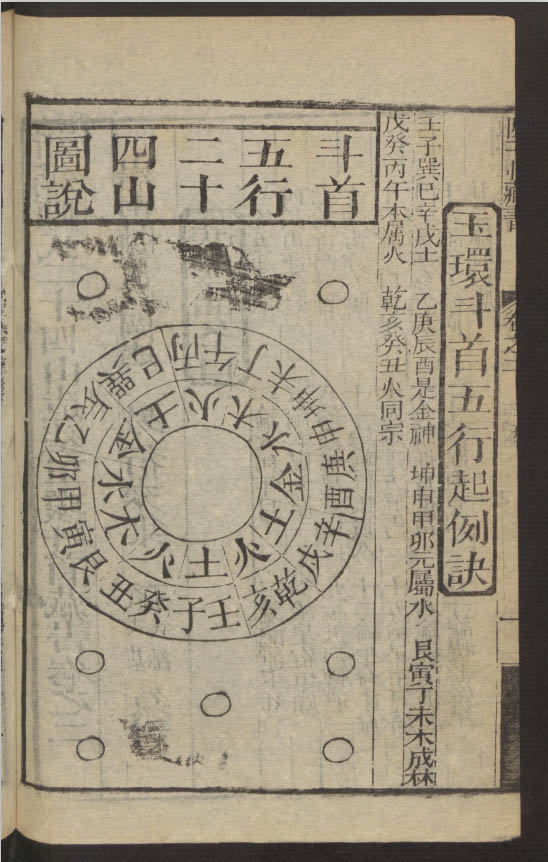 卷之一
玉環斗首五行起例訣
壬子巽巳辛戌土 乙庚辰酉是金神 坤申甲卯元屬水 艮寅丁未木成林
戊癸丙午木属火 乾亥癸丑火同宗
斗首
五行
二十
四山
圖說
壬子癸丑艮寅甲卯乙辰巽巳丙午丁未坤申庚酉辛戌乾亥
土火木水金土火木水金土火